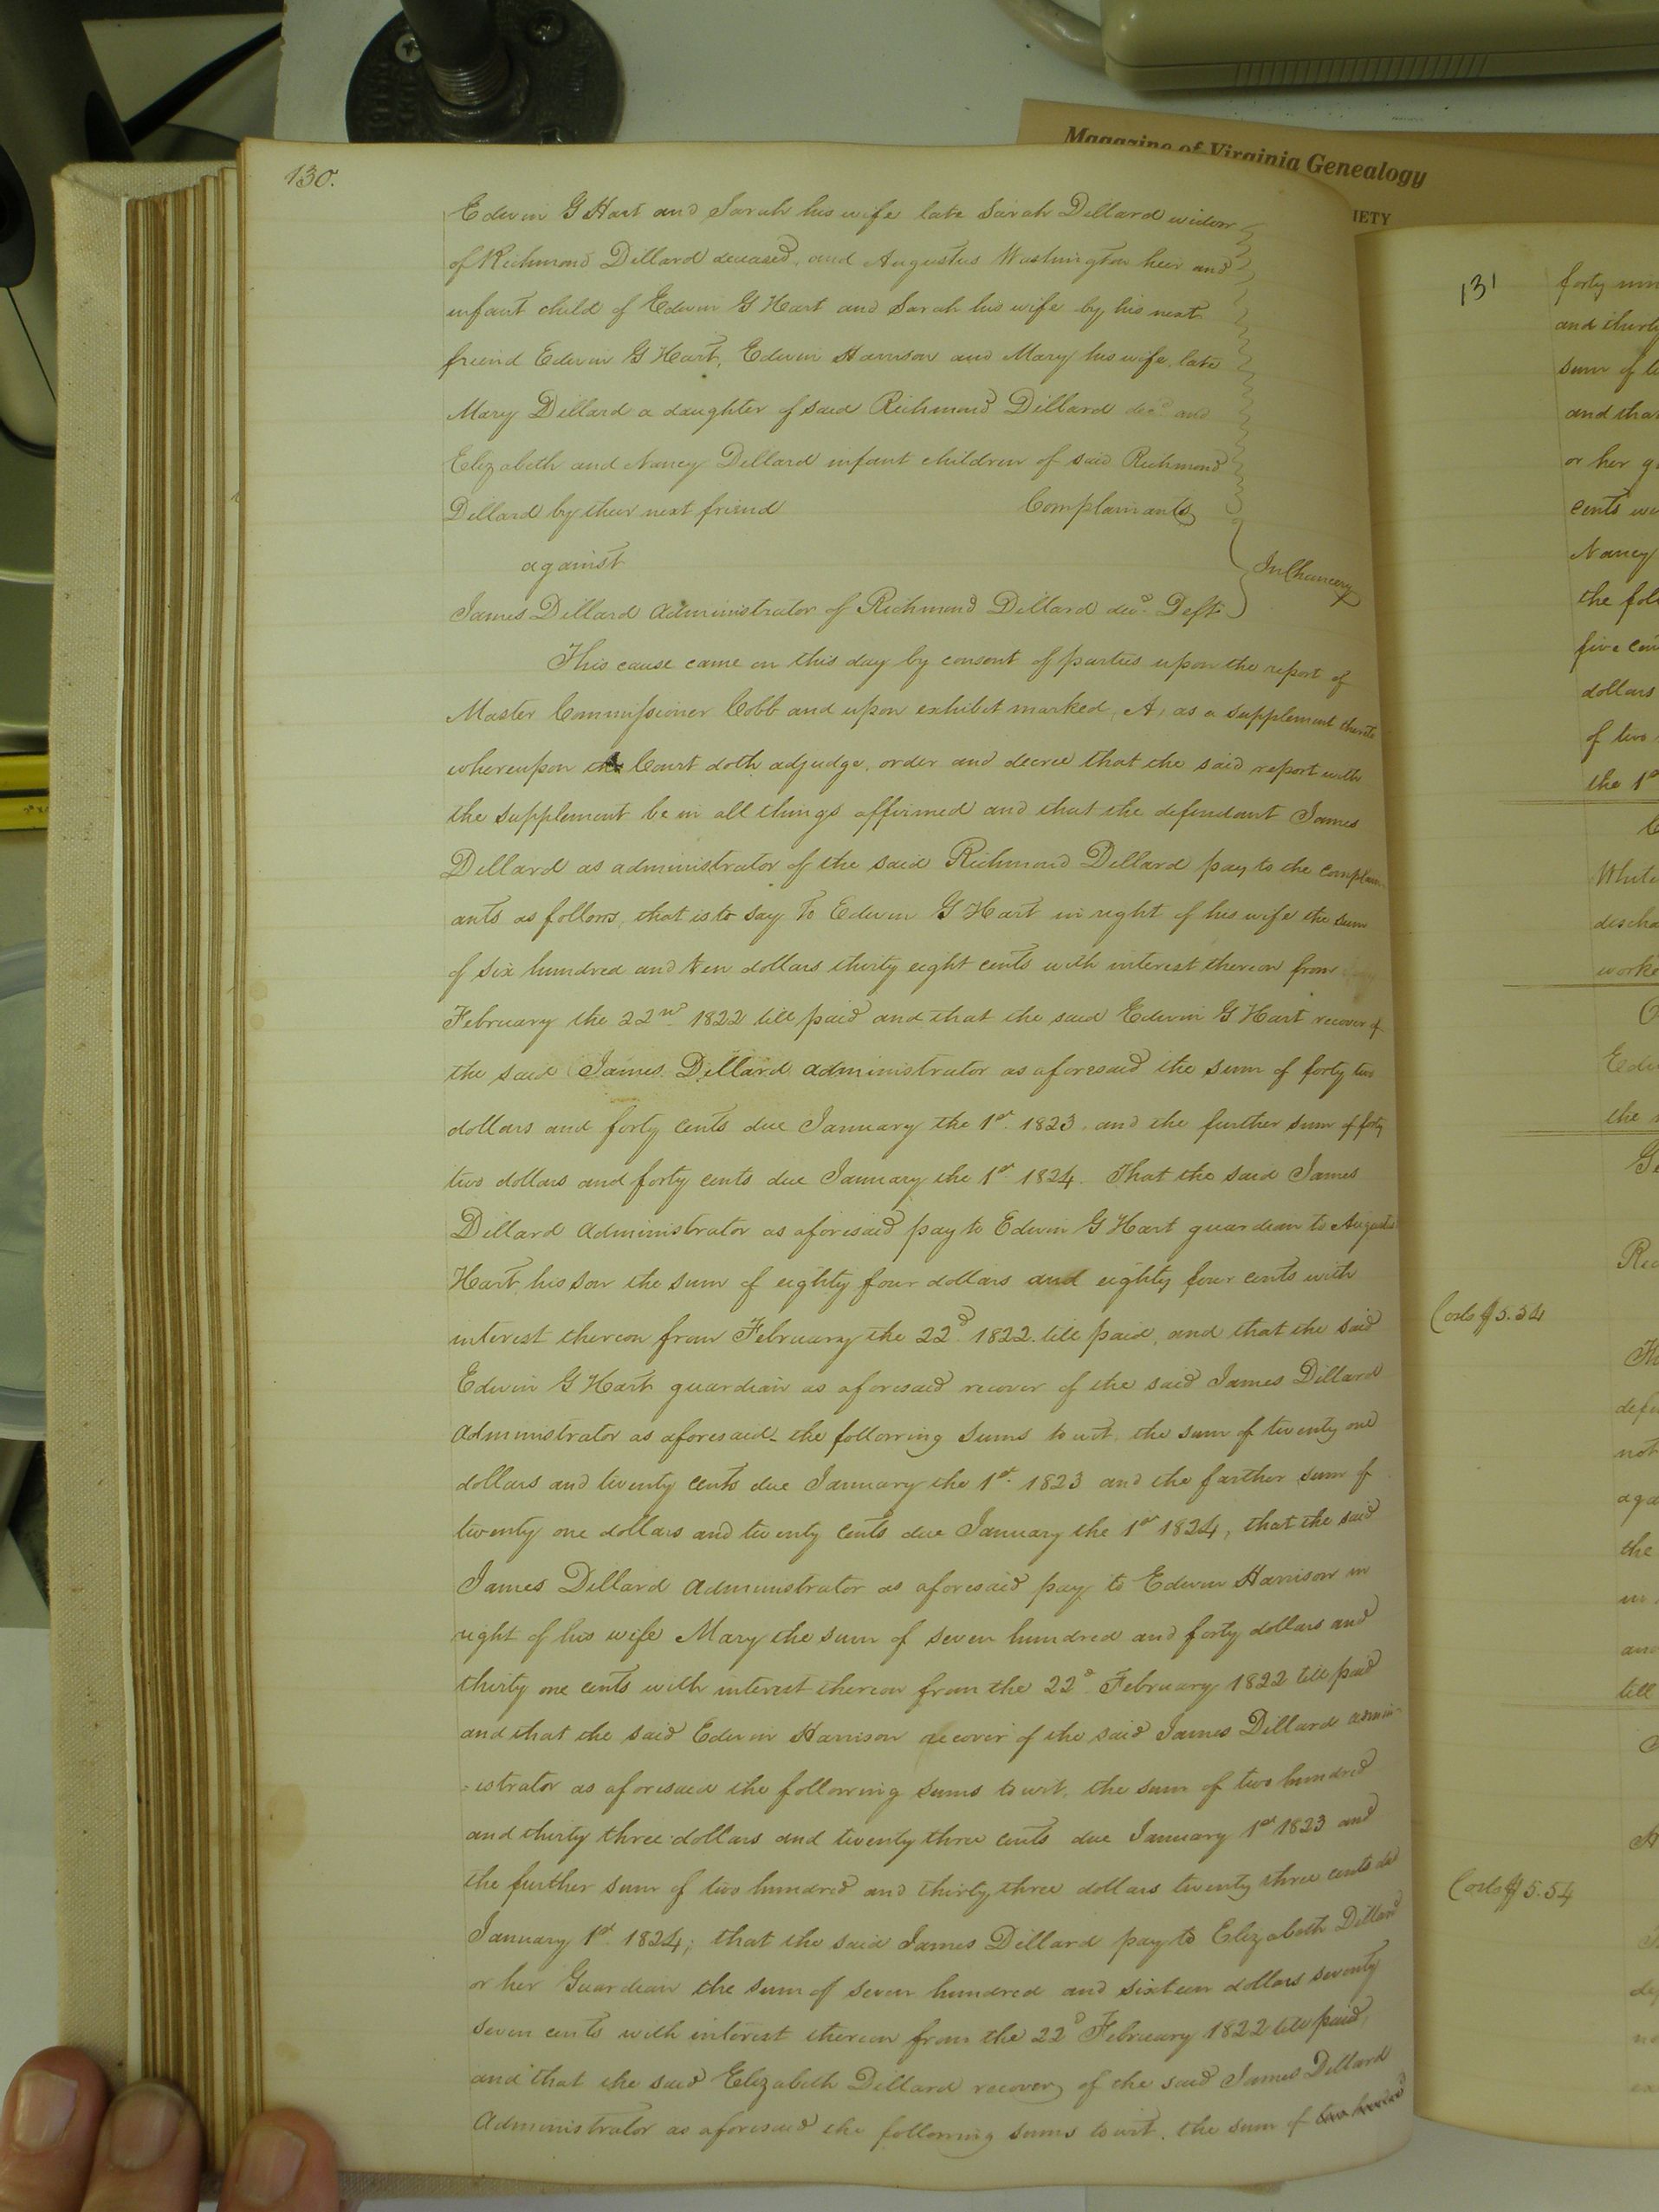 Magazine of Virginia Genealogy
IETY
130.
Edwin G Hart and Sarah his wife late Sarah Dillard widow
of Richmond Dillard deceased, and Augustus Washington heir and
infant child of Edwin G Hart and Sarah his wife by his next
friend Edwin G Hart, Edwin Harrison and Mary his wife, late
Mary Dillard a daughter of said Richmond Dillard decd and
Elizabeth and Nancy Dillard infant children of said Richmond
Dillard by their next friend Complainants
against
In Chancery
James Dillard Administrator of Richmond Dillard decd. Deft.
This cause came on this day by consent of parties upon the report of
Master Commissioner Cobb and upon exhibit marked, A, as a supplement thereto
whereupon the Court doth adjudge, order and decree that the said report with
the supplement be in all things affirmed and that the defendant James
Dillard as administrator of the said Richmond Dillard pay to the complain-
ants as follows, that is to say To Edwin G Hart in right of his wife the sum
of six hundred and ten dollars thirty eight cents with interest thereon from
February the 22nd 1822 till paid and that the said Edwin G Hart recover of
the said James Dillard administrator as aforesaid the sum of forty two
dollars and forty cents due January the 1st 1823. and the further sum of forty
two dollars and forty cents due January the 1st 1824. That the said James
Dillard Administrator as aforesaid pay to Edwin G Hart guardian to Augustus
Hart his son the sum of eighty four dollars and eighty four cents with
interest thereon from February the 22d 1822. till paid, and that the said
Edwin G Hart guardian as aforesaid recover of the said James Dillard
Administrator as aforesaid the following sums to wit, the sum of twenty one
dollars and twenty cents due January the 1st. 1823 and the farther sum of
twenty one dollars and twenty cents due January the 1st 1824, that the said
James Dillard Administrator as aforesaid pay to Edwin Harrison in
right of his wife Mary the sum of seven hundred and forty dollars and
thirty one cents with interest thereon from the 22d February 1822 till paid
and that the said Edwin Harrison recover of the said James Dillard admin-
istrator as aforesaid the following sums to wit, the sum of two hundred
and thirty three dollars and twenty three cents due January 1st 1823 and
the further sum of two hundred and thirty three dollars twenty three cents due
January 1st 1824; that the said James Dillard pay to Elizabeth Dillard
or her Guardian the sum of seven hundred and sixteen dollars seventy
seven cents with interest thereon from the 22d February 1822 till paid,
and that the said Elizabeth Dillard recover of the said James Dillard
Administrator as aforesaid the following sums to wit, the sum of two hundred
131
forty
and
sum of
and that
or her
cents
Nancy
the
five
dollars
of two
the 1st
the
Costs $5.54
not
the
and
till
Costs $5.54